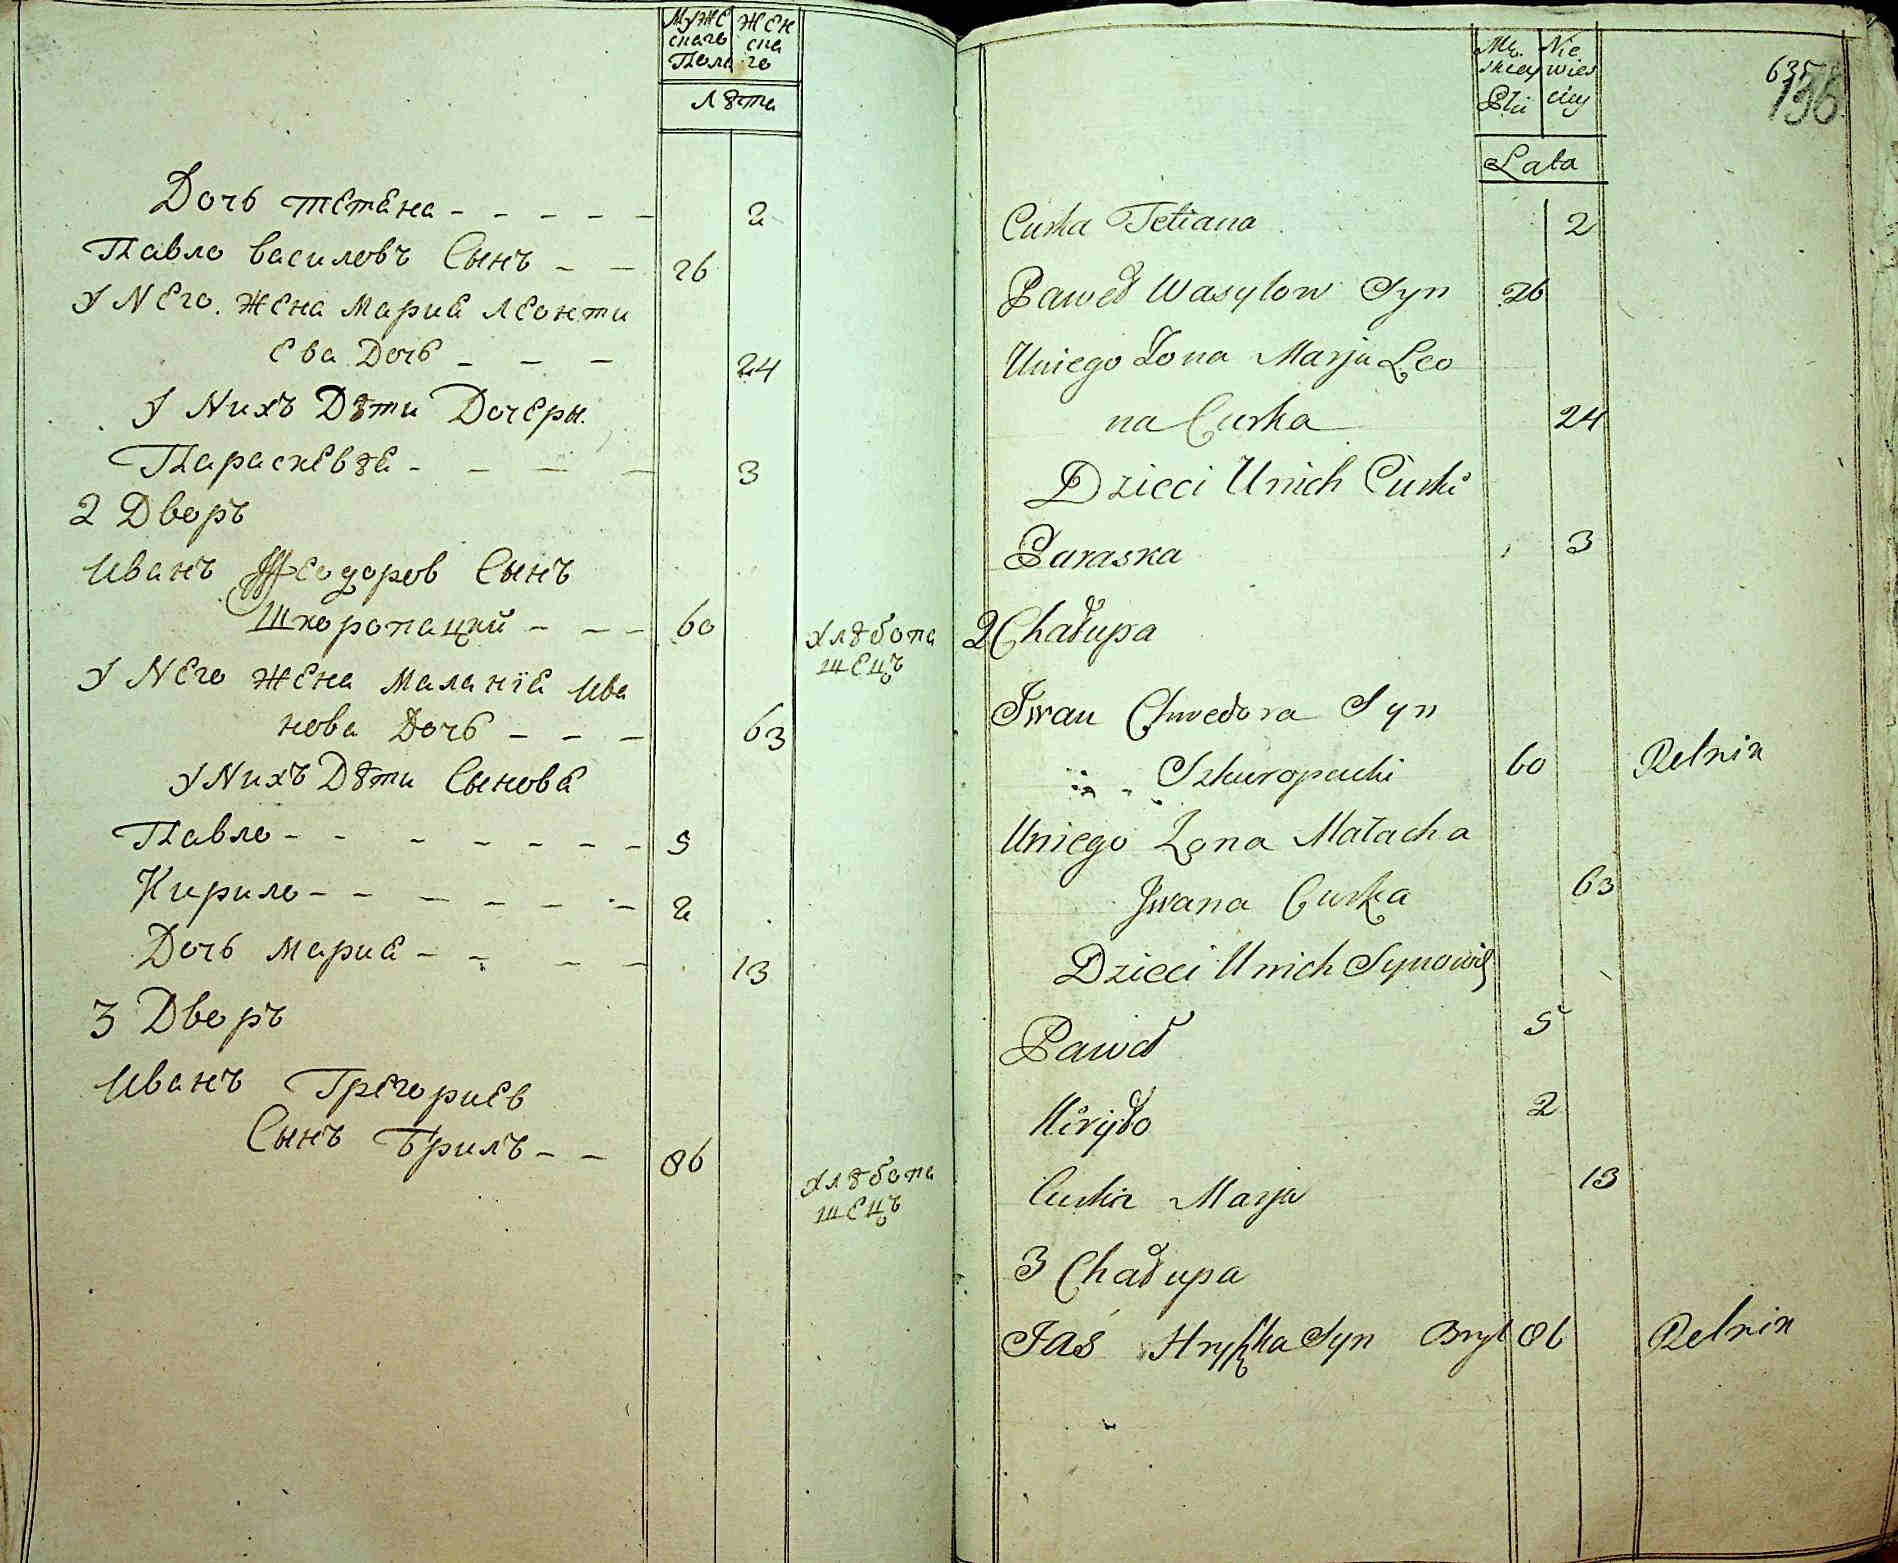 Муже Жен
скаго ска
Пола го
Лѣта
Дочь тетѣна - - - - - 2
Павло василовъ Сынъ - - 26
У Него. Жена Мариѣ Леонти
Ева Дочь - - - 24
У Нихъ Дѣти Дочери.
Параскевѣѣ - - - - 3
2 Дворъ
Иванъ Феодоров Сынъ
Шкоропацкий - - - 60 хлѣбопа
шецъ
У Него Жена Маланїѣ Ива
нова Дочь - - - 63
У Нихъ Дѣти Сыновѣ
Павло - - - - - - - 5
Кирило - - - - - - - 2
Дочь Мариѣ - - - - 13
3 Дворъ
Иванъ Грегориев
Сынъ Брилъ - - 86 хлѣбопа
шецъ
635
136
Mę. Nie
skiey wies
Płci ciey
Lata
Curka Tetiana 2
Paweł Wasylow Syn 26
Uniego Żona Marja Leo
na Curka 24
Dzieci Unich Curki
Paraska 3
2 Chałupa
Iwan Chwedora Syn
Szkuropacki 60 Relnik
Uniego Żona Małacha
Iwana Curka 63
Dzieci Unich Synowie
Paweł 5
Kiryło 2
Curka Marja 13
3 Chałupa
Jaś Hryćka Syn Bryl 86 Relnik